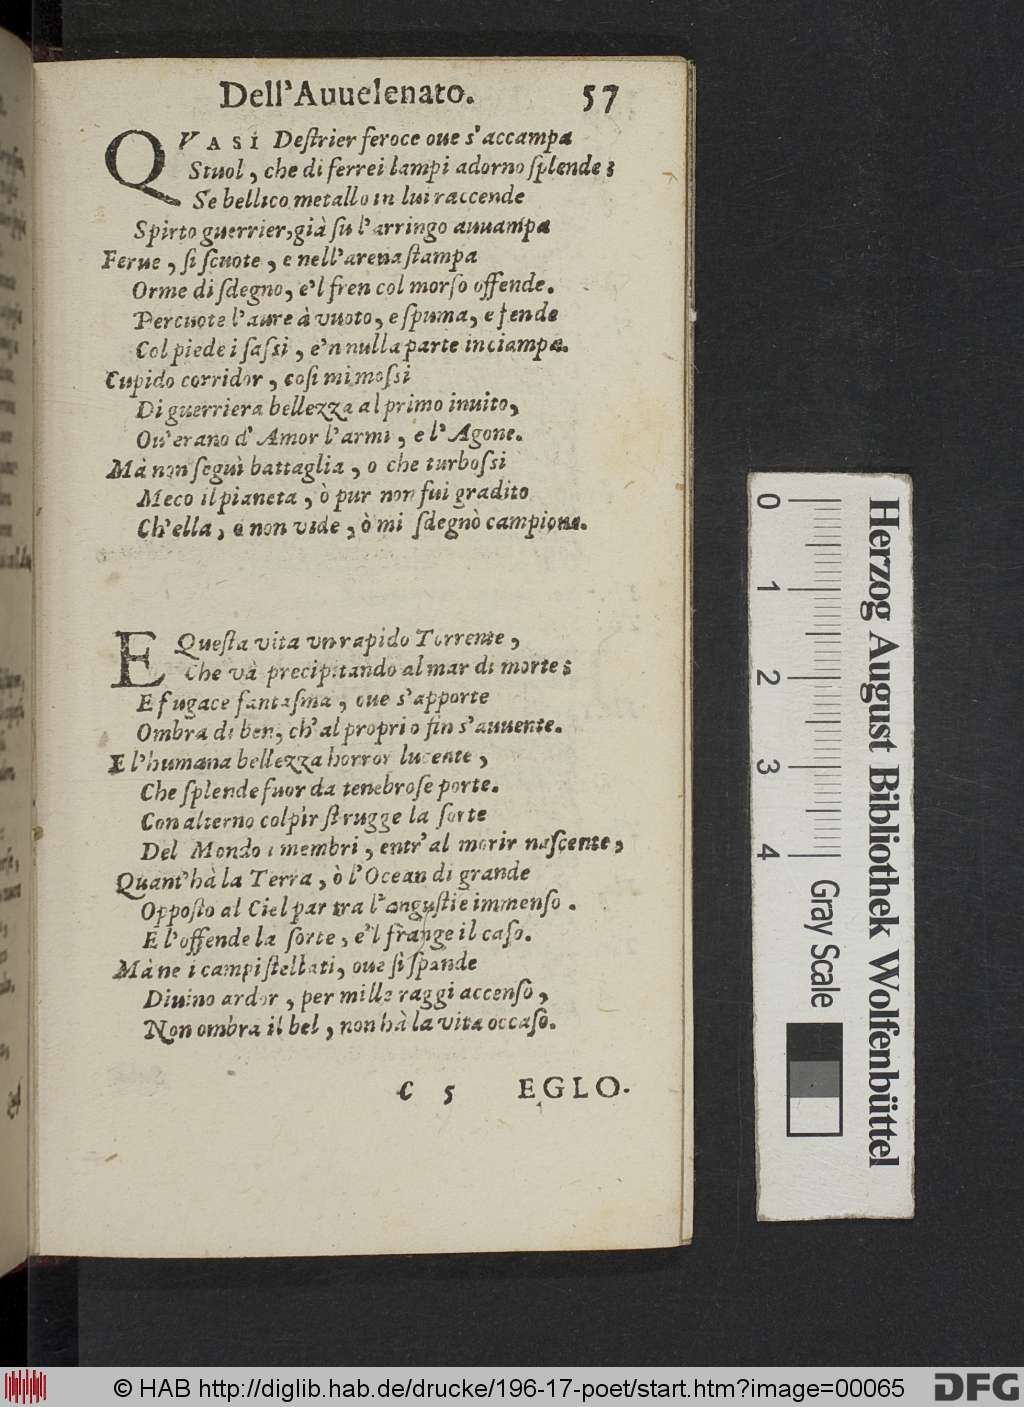 Dell'Auuelenato. 57
QVASI Deſtrier feroce oue s'accampa
Stuol, che di ferrei lampi adorno ſplende;
Se bellico metallo in lui raccende
Spirto guerrier, già ſu l'arringo auuampa
Ferue, ſi ſcuote, e nell'arena ſtampa
Orme di ſdegno, e'l fren col morſo offende.
Percuote l'aure à vuoto, e ſpuma, e fende
Col piede i ſaſsi, e'n nulla parte inciampa.
Cupido corridor, coſi mi moſsi
Di guerriera bellezza al primo inuito,
Ou'erano d'Amor l'armi, e l'Agone.
Mà non ſeguì battaglia, o che turboſsi
Meco il pianeta, ò pur non fui gradito
Ch'ella, ò non vide, ò mi ſdegnò campione.
E Queſta vita vn rapido Torrente,
Che và precipitando al mar di morte;
E fugace fantaſma, oue s'apporte
Ombra di ben, ch'al proprio fin s'auuente.
E l'humana bellezza horror lucente,
Che ſplende fuor da tenebroſe porte.
Con alterno colpir ſtrugge la ſorte
Del Mondo i membri, entr'al morir naſcente,
Quant'hà la Terra, ò l'Ocean di grande
Oppoſto al Ciel par tra l'anguſtie immenſo.
E l'offende la ſorte, e'l frange il caſo.
Mà ne i campi ſtellati, oue ſi ſpande
Diuino ardor, per mille raggi accenſo,
Non ombra il bel, non hà la vita occaſo.
C 5 EGLO-
0 1 2 3 4
Herzog August Bibliothek Wolfenbüttel
Gray Scale
© HAB http://diglib.hab.de/drucke/196-17-poet/start.htm?image=00065
DFG